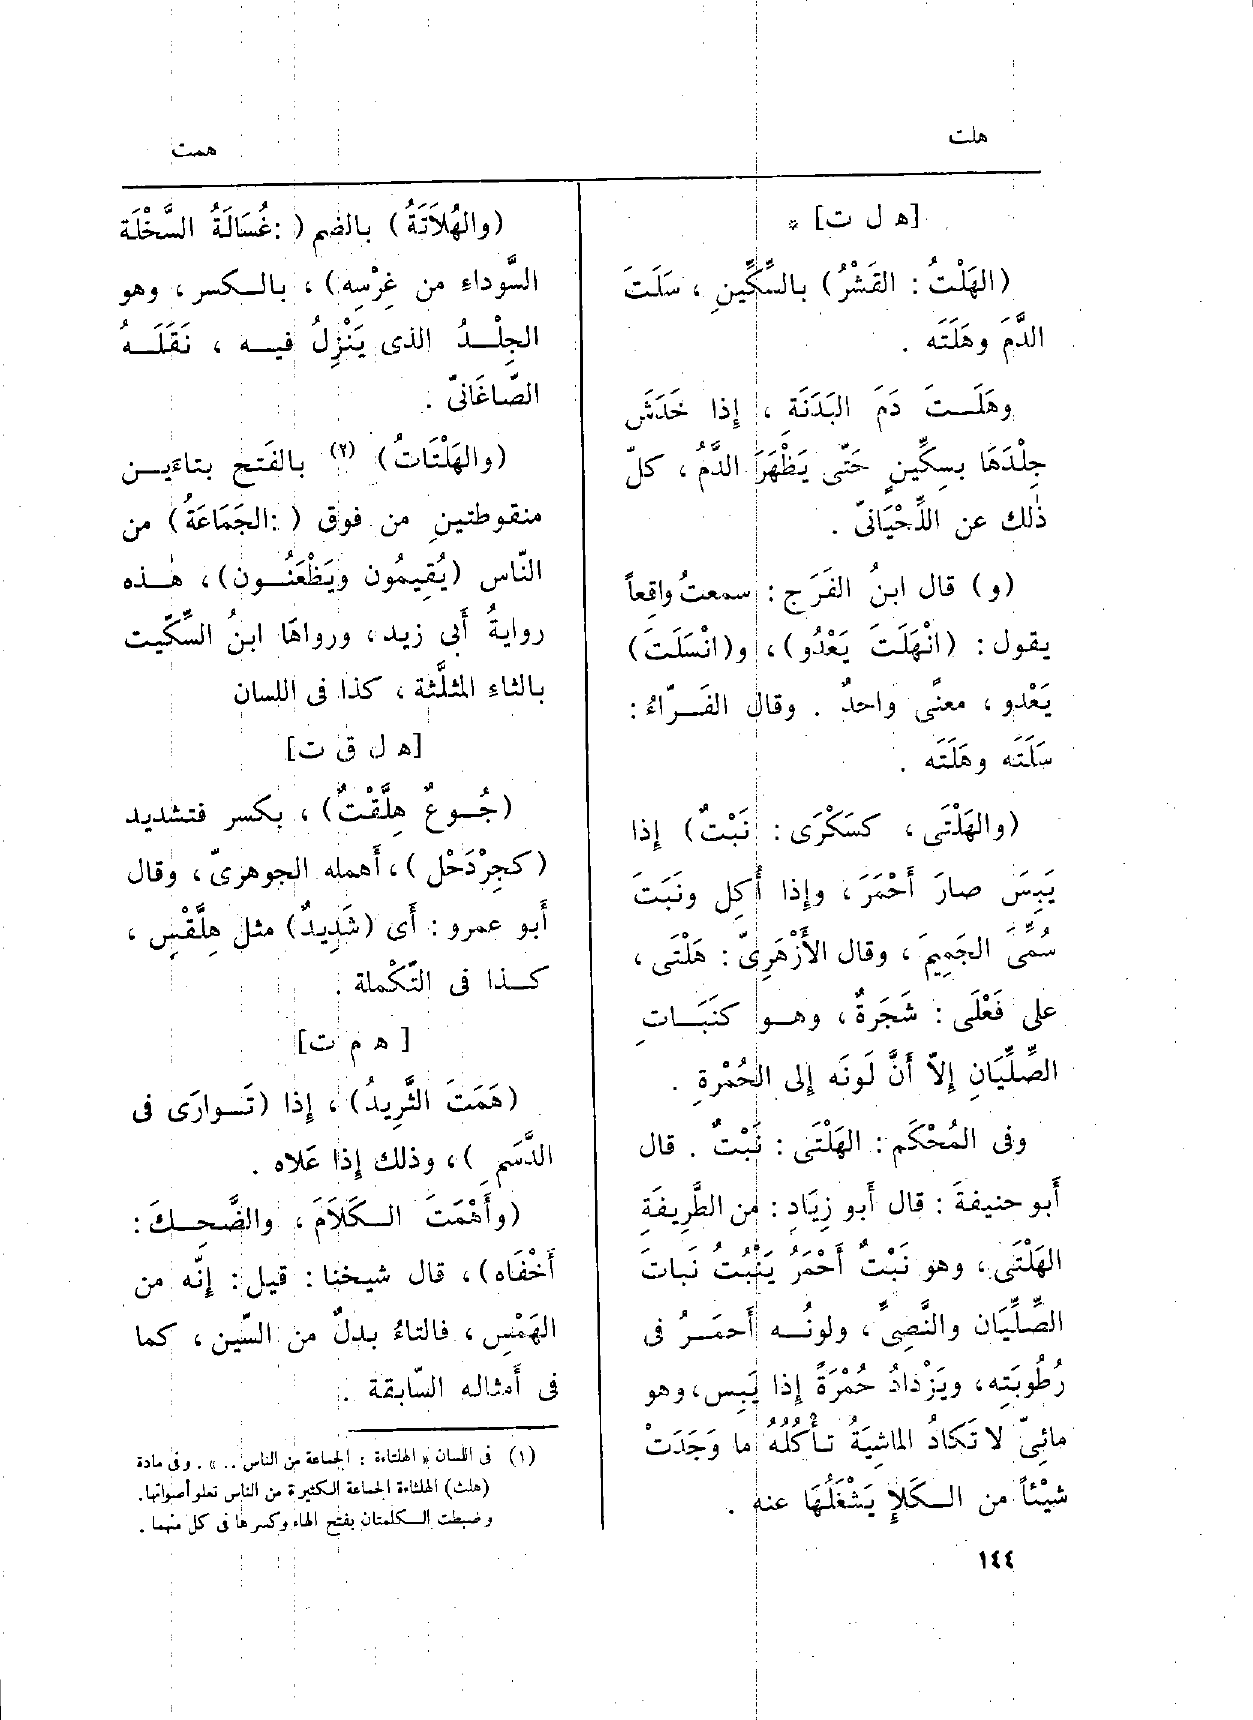 هلت
همت
[ه ل ت] *
(الهَلْتُ : القَشْرُ) بالسِّكِّينِ ، سَلَتَ
الدَّمَ وهَلَتَه .
وهَلَــتَ دَمَ البَدَنَةِ ، إِذا خَدَشَ
جِلْدَهَا بسِكِّينٍ حَتَّى يَظْهَرَ الدَّمُ ، كلّ
ذٰلك عن اللِّحْيَانىّ .
(و) قال ابنُ الفَرَج : سمعتُ واقعاً
يقول : (انْهَلَتَ يَعْدُو)، و(انْسَلَتَ)
يَعْدو ، معنًى واحدٌ . وقال الفَــرّاءُ :
سَلَتَه وهَلَتَه .
(والهَلْتَى ، كسَكْرَى : نَبْتٌ) إِذا
يَبِسَ صارَ أَحْمَرَ ، وإِذا أُكِل ونَبَتَ
سُمِّىَ الجَمِيمَ ، وقال الأَزْهَرِىّ : هَلْتَى ،
على فَعْلَى : شَجَرَةٌ ، وهــو كنَبَــاتِ
الصِّلِّيَانِ إِلاّ أَنَّ لَونَه إِلى الحُمْرةِ .
وفى المُحْكَم : الهَلْتَى : نَبْتٌ . قال
أَبو حنيفةَ : قال أَبو زِيَادٍ : من الطَّرِيفَةِ
الهَلْتَى ، وهو نَبْتٌ أَحْمَرُ يَنْبُتُ نَباتَ
الصِّلِّيَان والنَّصِىِّ ، ولونُــه أَحمَــرُ فى
رُطُوبَتِه ، ويَزْدادُ حُمْرَةً إِذا يَبِس ، وهو
مائِىّ لا تَكادُ الماشِيَةُ تــأْكُلُهُ ما وَجَدَتْ
شيْئاً من الــكَلإِ يَشْغَلُهَا عنه .
(والهُلَاتَةُ) بالضم (:غُسَالَةُ السَّخْلَة
السَّوداءِ من غِرْسِه) ، بالــكسر ، وهو
الجِلْــدُ الذى يَنْزِلُ فيــه ، نَقَلَــهُ
الصّاغَانىّ .
(والهَلْتَاتُ) (٢) بالفَتح بتاءَيــن
منقوطتينِ من فوق ( :الجَمَاعَةُ) من
النّاس (يُقِيمُون ويَظْعَنُــون) ، هٰــذه
روايةُ أَبى زيد ، ورواهَا ابنُ السِّكِّيت
بالثاءِ المثلَّثة ، كذا فى اللسان
[ه ل ق ت]
(جُــوعٌ هِلَّقْتٌ) ، بكسر فتشديد
(كجِرْدَحْل) ، أَهمله الجوهرىّ ، وقال
أَبو عمرو : أَى (شَدِيدٌ) مثل هِلَّقْسٍ ،
كــذا فى التَّكْملة .
[ ه م ت]
(هَمَتَ الثَّرِيدُ) ، إِذا (تَــوارَى فى
الدَّسَمِ ) ، وذلك إِذا عَلاه .
(وأَهْمَتَ الــكَلاَمَ ، والضَّحِــكَ :
أَخْفَاه) ، قال شيخنا : قيل : إِنّه من
الهَمْسِ ، فالتاءُ بدلٌ من السِّين ، كما
فى أَمثاله السّابقة .
(١) فى اللسان « الهلتاءة : الجماعة من الناس .. » . وفى مادة
(هلث) الهلثاءة الجماعة الكثيرة من الناس تعلو أصواتها.
وضبطت الــكلمتان بفتح الهاء وكسرها فى كل منهما .
١٤٤